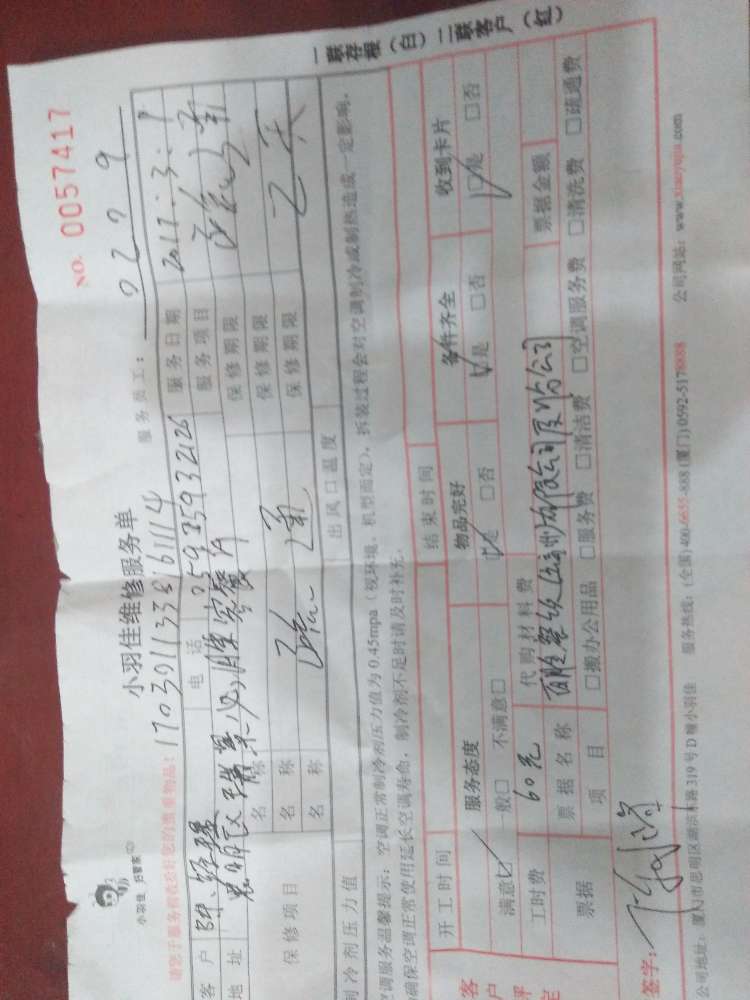 NO. 0057417
小羽佳 妇管家
小羽佳维修服务单
服务员工:
0229
请您于服务前收拾好您的贵重物品!
1703011338161114
客户
电话
05935932126
服务日期
2017.3.1
地址
思明区瑞景
服务项目
保修项目
名称
保修期限
名称
疏通
保修期限
名称
保修期限
制冷剂压力值
出风口温度
空调服务温馨提示:空调正常制冷剂压力值为0.45mpa(视环境、机型而定),拆装过程会对空调制冷或制热造成一定影响,
确保空调正常使用延长空调寿命,制冷剂不足时请及时补充。
开工时间
结束时间
客户评定
服务态度
物品完好
备件齐全
收到卡片
满意☑ 一般□ 不满意□
☑是 □否
☑是 □否
☑是 □否
工时费
60元
代购材料费
票据
票据名称
百胜餐饮(福州)有限公司厦门分公司
票据金额
项目
□搬办公用品 □服务费 □清洁费 □空调服务费 □清洗费 □疏通费
签字:
公司地址:厦门市思明区湖滨东路319号D幢小羽佳 服务热线:(全国)400-6655-888 (厦门)0592-5178888 公司网站:www.xiaoyujia.com
一联存根(白)二联客户(红)